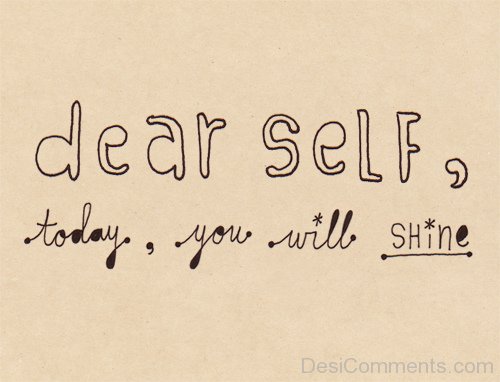 dear self,
today, you will SHiNe
DesiComments.com